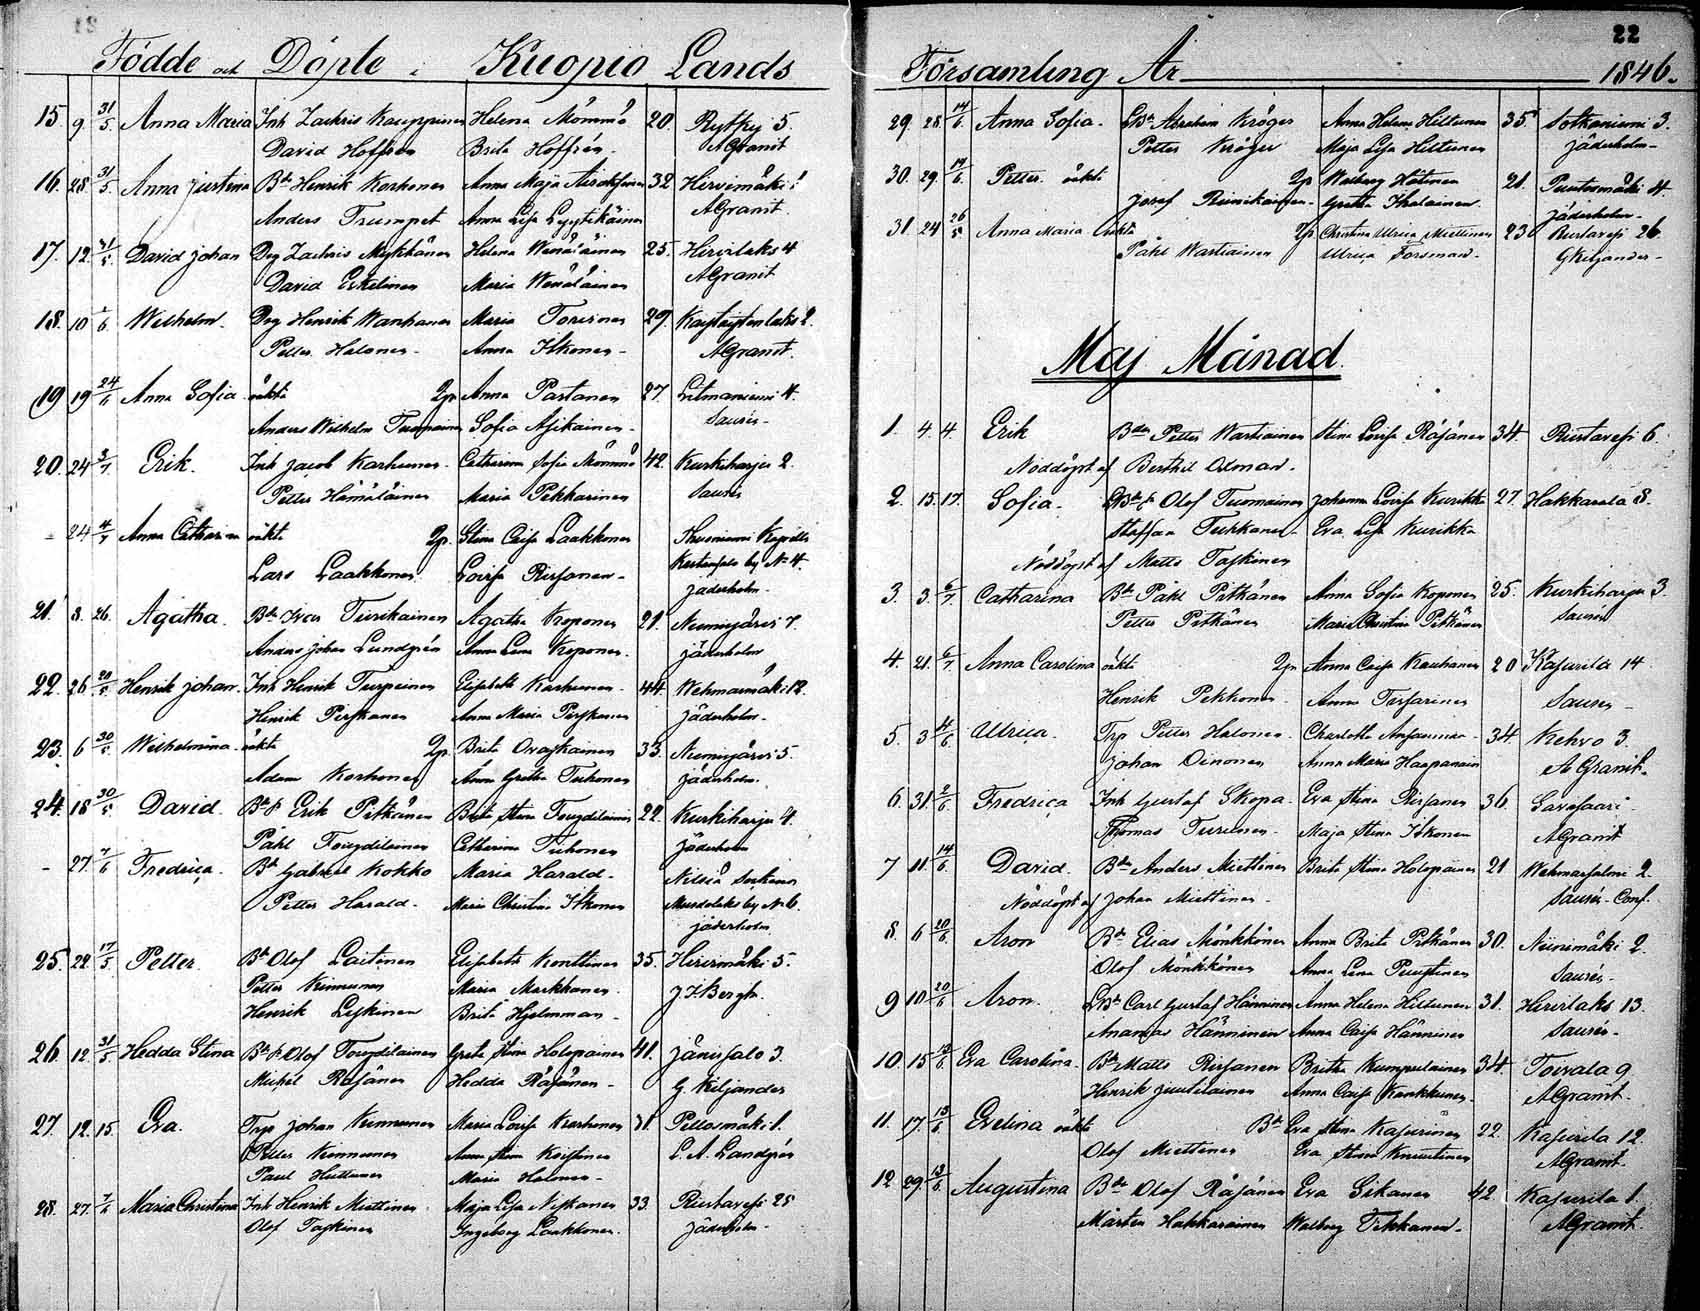 Födde och Döpte i Kuopio Lands
15. 9. 31/5 Anna Maria Inh Zachris Kauppinen Helena Mömmö 20. Rytky 5.
David Hoffren Brita Hoffrén. AGranit
16. 28 31/5 Anna Justina Bd Henrik Korhonen Anna Maja 32 Hirvimäki 1
Anders Trumpet Anna Lisa Lyytikäinen AGranit.
17. 12. 31/5 David Johan Drg Zachris Mykkänen Helena Wänäläinen 25. Hirvilaks 4
David Eskelinen Maria Wänäläinen AGranit
18. 10 1/6 Wilhelm. Drg Henrik Wanhanen Maria Toivinen 29. 2.
Petter Halonen Anna Itkonen AGranit.
19 19 24/6 Anna Sofia oäkta Qp Anna Partanen 27. Litmaniemi 4.
Anders Wilhelm Sofia Asikainen Saurén
20. 24 3/7 Erik. Inh Jacob Karhunen Catharina Sofia Mömmö 42. Kurkiharju 2.
Petter Hämäläinen Maria Pekkarinen Saurén
24 4/7 Anna Catharina oäkta Qp. Stina Caisa Laakkonen Kapells
Lars Laakkonen. Lovisa Rissanen by No 4.
Jäderholm
21. 8. 26. Agatha. Bd Iver Turikainen Agatha Koponen 21. Nieminjärvi 7.
Anders Johan Lundgrén Anna Lena Koponen. Jäderholm
22 26 20/5 Henrik Johan Inh Henrik Turpeinen Elisabeth Karhunen 44. Wehmasmäki 12.
Henrik Pirskanen Anna Maria Pirskanen Jäderholm
23. 6 30/5 Wilhelmina oäkta Qp Brita Ovaskainen 33. Nieminjärvi 5.
Adam Korhonen Anna Gretha Tuhonen Jäderholm.
24. 18 30/5 David. Bds Erik Pitkänen Brita Stina Tougdilainen 22. Kurkiharju 4.
Påhl Tougdilainen Catharina Tuhonen Jäderholm
27. 7/6 Fredrica. Bd Gabriel Kokko Maria Harald Nilsiä Socken
Petter Harald. Maria Christina Itkonen by No 6.
Jäderholm
25. 22. 17/5 Petter Bd Olof Laitinen Elisabeth Konttinen 35. Hirvimäki 5.
Petter Kinnunen Maria Markkanen J.F. Bergh.
Henrik Leskinen Brita Hjelmman
26 12. 31/5 Hedda Stina Bds Olof Tougdilainen Greta Stina Holopainen 41. Jänissalo 3.
Michel Räsänen Hedda Räsänen G. Kiljander
27. 12. 15. Eva. Trp Johan Kinnunen Maria Lovisa Karhunen 31. Pellosmäki 1.
Petter Kinnunen Anna Stina Koistinen L. A. Landgrén
Paul Huttunen Maria Halonen
28. 27. 7/6 Maria Christina Inh Henrik Miettinen Maja Lisa Niskanen 33. Ristavesi 28
Olof Taskinen Ingeborg Laakkonen. Jäderholm
22
Församling År 1846.
29. 28. 14/6 Anna Sofia Abraham Kröger Anna Helena Hiltunen 35 Sotkaniemi 3.
Petter Kröger Maja Lisa Hiltunen Jäderholm
30. 29. 14/6 Petter. oäkta Qp Walborg Hätinen 21. Puutosmäki 4.
Josef Reinikainen Gretha Ihalainen Jäderholm
31. 24 26/5 Anna Maria oäkta Qp Christina Ulrica Miettinen 23 Ristavesi 26.
Påhl Wartiainen Ulrica Forsman. G Kiljander
Maj Månad.
1. 4. 4. Erik Bdn Petter Wartiainen Stina Lovisa Räsänen 34. Ristavesi 6.
Nöddöpt af Berthil Ödman.
2. 15. 17. Sofia. Olof Tuomainen Johanna Lovisa Kurikka 27. Hakkarala 8.
Staffan Tukkanen Eva Lisa Kurikka
Nöddöpt af Matts Taskinen
3. 3. 6/7 Catharina Bd Påhl Pitkänen Anna Sofia Koponen 25. Kurkiharju 3.
Petter Pitkänen Maria Christina Pitkänen Saurén
4. 21. 6/7 Anna Carolina oäkta Qp Anna Caisa Kauhanen 20 Kasurila 14
Henrik Pekkonen Anna Tissarinen Saurén
5. 3 4/6 Ulrica. Trp Petter Halonen Charlotta 34. Kehvo 3.
Johan Oinonen Anna Maria Haapanain A Granit.
6. 31. 2/6 Fredrica Inh Gustaf Skopa. Eva Stina Rissanen 36. Savisaari
Thomas Turunen Maja Stina Itkonen AGranit
7 11. 14/6 David. Bdn Anders Miettinen Brita Stina Holopainen 21 Wehmersalmi 2.
Nöddöpt af Johan Miettinen. Saurén. Conf.
8. 6 20/6 Aron Bd Elias Mönkkönen Anna Brita Pitkänen 30. Niinimäki 2.
Olof Mönkkönen Anna Lena Puustinen Saurén
9 10 20/6 Aron. Carl Gustaf Hänninen Anna Helena Hiltunen 31. Hirvilaks 13.
Ananias Hänninen Anna Caisa Hänninen Saurén
10. 15 13/6 Eva Carolina. Bd Matts Rissanen Britha Kumpulainen 34. Toivala 9.
Henrik Juutilainen Anna Caisa Kankkunen AGranit.
11. 17. 13/6 Evelina oäkta Bd Eva Stina Kasurinen 22. Kasurila 12.
Olof Miettinen Eva Stina Knuutinen AGranit
12 29 13/6 Augustina Bdn Olof Räsänen Eva Sikanen 42. Kasurila 1.
Mårten Hakkarainen Walborg Tikkanen AGranit